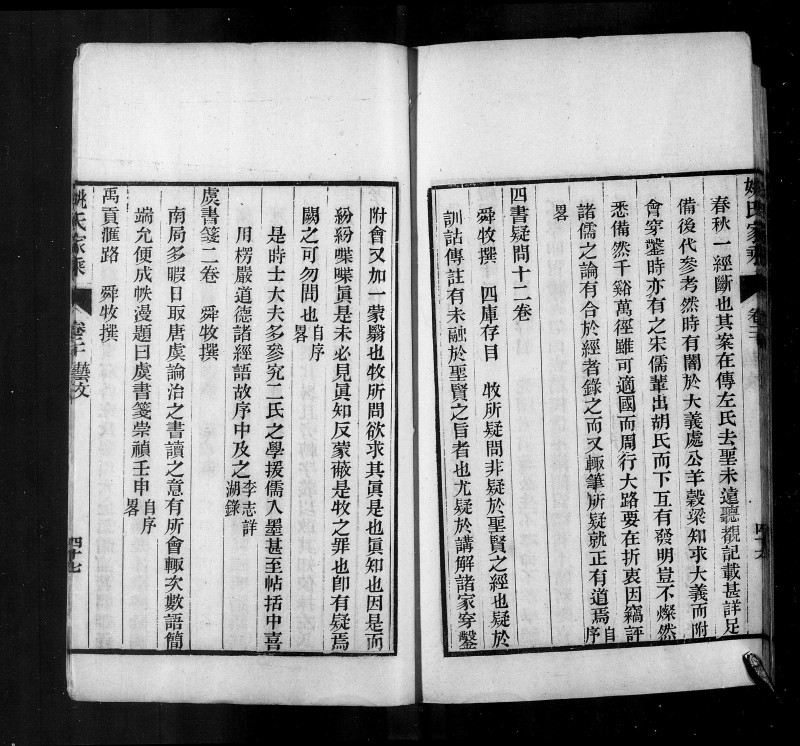 姚氏家乘
卷二十
四十六
春秋一經斷也其案在傳左氏去聖未遠聽覩記載甚詳足
備後代參考然時有闇於大義處公羊穀梁知求大義而附
會穿鑿時亦有之宋儒輩出胡氏而下互有發明豈不燦然
悉備然千谿萬徑雖可適國而周行大路要在折衷因竊評
諸儒之論有合於經者錄之而又輒筆所疑就正有道焉自序
畧
四書疑問十二卷
舜牧撰　四庫存目　牧所疑問非疑於聖賢之經也疑於
訓詁傳註有未融於聖賢之旨者也尤疑於講解諸家穿鑿
附會又加一蒙翳也牧所問欲求其眞是也眞知也因是而
紛紛喋喋眞是未必見眞知反蒙蔽是牧之罪也卽有疑焉
闕之可勿問也自序畧
是時士大夫多參究二氏之學援儒入墨甚至帖括中喜
用楞嚴道德諸經語故序中及之李志詳湖錄
虞書箋二卷　舜牧撰
南局多暇日取唐虞論治之書讀之意有所會輒次數語簡
端允便成帙漫題曰虞書箋崇禎壬申自序畧
禹貢滙路　舜牧撰
姚氏家乘
卷二十　藝文
四十七